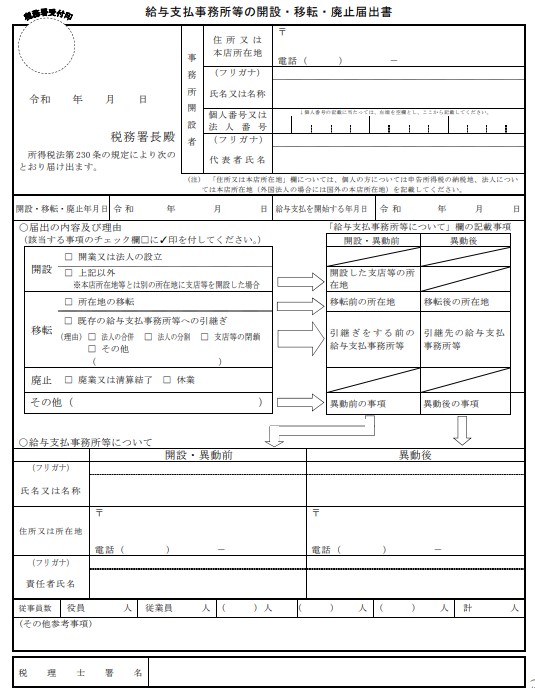 税務署受付印
給与支払事務所等の開設・移転・廃止届出書
令和　年　月　日
税務署長殿
所得税法第230条の規定により次の
とおり届け出ます。
事務所開設者
住所又は
本店所在地
〒
電話（　　）　－
（フリガナ）
氏名又は名称
個人番号又は
法人番号
↓個人番号の記載に当たっては、左端を空欄とし、ここから記載してください。
（フリガナ）
代表者氏名
（注）「住所又は本店所在地」欄については、個人の方については申告所得税の納税地、法人につい
ては本店所在地（外国法人の場合には国外の本店所在地）を記載してください。
開設・移転・廃止年月日　令和　年　月　日　給与支払を開始する年月日　令和　年　月　日
○届出の内容及び理由
（該当する事項のチェック欄□に✓印を付してください。）
「給与支払事務所等について」欄の記載事項
開設・異動前　異動後
開設
□ 開業又は法人の設立
□ 上記以外
※本店所在地等とは別の所在地に支店等を開設した場合
開設した支店等の所
在地
移転
□ 所在地の移転
移転前の所在地　移転後の所在地
□ 既存の給与支払事務所等への引継ぎ
（理由）□ 法人の合併　□ 法人の分割　□ 支店等の閉鎖
□ その他
（　　）
引継ぎをする前の
給与支払事務所等
引継先の給与支払
事務所等
廃止　□ 廃業又は清算結了　□ 休業
その他（　　）
異動前の事項　異動後の事項
○給与支払事務所等について
開設・異動前　異動後
（フリガナ）
氏名又は名称
住所又は所在地
〒　〒
電話（　　）　－　電話（　　）　－
（フリガナ）
責任者氏名
従事員数　役員　人　従業員　人　（　）人　（　）人　（　）人　計　人
（その他参考事項）
税理士署名